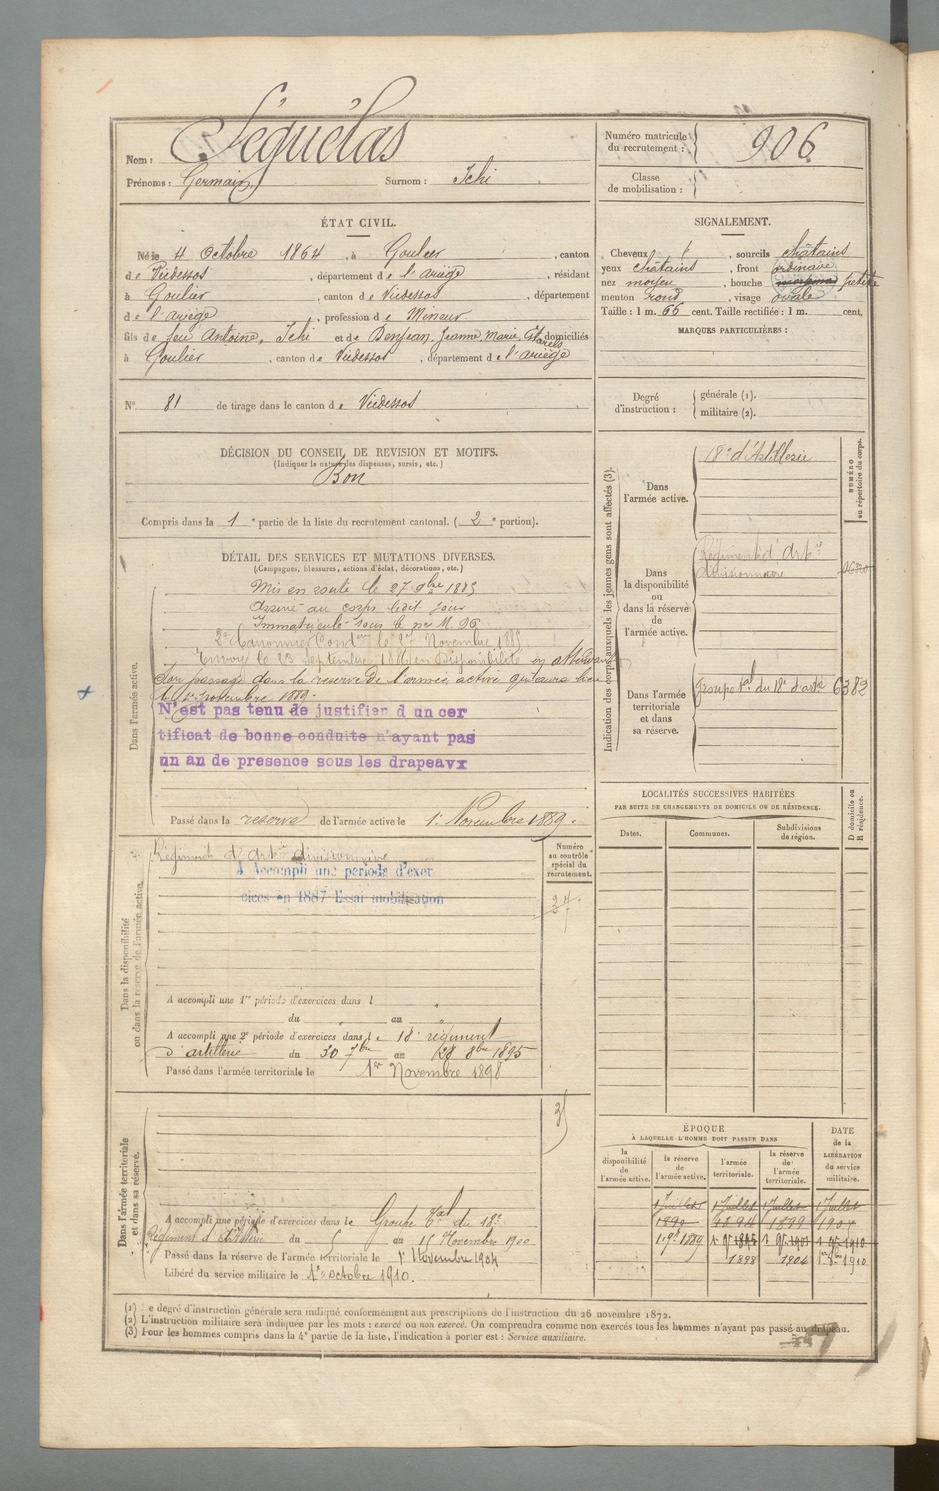 Nom : Séguélas
Prénoms : Germain Surnom : Ichi
Numéro matricule du recrutement : 906
Classe de mobilisation :
ÉTAT CIVIL.
Né le 4 Octobre 1864, à Goulier, canton
de Vicdessos, département de l'ariège, résidant
à Goulier, canton de Vicdessos, département
de l'ariège, profession de Mineur
fils de feu Antoine, Ichi et de Denjean, Jeanne, Marie, domiciliés
à Goulier, canton de Vicdessos, département de l'ariège
N° 81 de tirage dans le canton de Vicdessos
SIGNALEMENT.
Cheveux, sourcils châtains
yeux châtains, front ordinaire
nez moyen, bouche petite
menton rond, visage ovale
Taille : 1 m. 66 cent. Taille rectifiée : 1 m. cent.
MARQUES PARTICULIÈRES :
Degré d'instruction : générale (1). militaire (2).
DÉCISION DU CONSEIL DE REVISION ET MOTIFS.
(Indiquer la nature des dispenses, sursis, etc.)
Bon
Compris dans la 1e partie de la liste du recrutement cantonal. (2e portion).
DÉTAIL DES SERVICES ET MUTATIONS DIVERSES.
(Campagnes, blessures, actions d'éclat, décorations, etc.)
Dans l'armée active.
Mis en route le 27 9bre 1885
Arrivé au corps ledit jour
Immatriculé sous le no M. 96
2e Canonnier Condeur le 27 Novembre 1885
Envoyé le 23 Septembre 1886 en Disponibilité en attendant
son passage dans la réserve de l'armée active qui aura lieu
le 1er novembre 1889.
N'est pas tenu de justifier d un cer
tificat de bonne conduite n'ayant pas
un an de presence sous les drapeavx
Passé dans la reserve de l'armée active le 1er Novembre 1889.
Indication des corps auxquels les jeunes gens sont affectés (3).
NUMÉRO au répertoire du corps.
Dans l'armée active. 18e d'Artillerie
Dans la disponibilité ou dans la réserve de l'armée active. Régiment d'artie divisionnaire
Dans l'armée territoriale et dans sa réserve. Groupe tal du 18e d'artie 6382
Dans la disponibilité ou dans la réserve de l'armée active.
Régiment d'artie divisionnaire
A Accompli une periode d'exer
cices en 1887 Essai mobilisation
Numéro au contrôle spécial du recrutement.
A accompli une 1re période d'exercices dans l
du au
A accompli une 2e période d'exercices dans le 18e régiment
d'artillerie du 30 7bre au 28 8bre 1895
Passé dans l'armée territoriale le 1er Novembre 1898
LOCALITÉS SUCCESSIVES HABITÉES
PAR SUITE DE CHANGEMENTS DE DOMICILE OU DE RÉSIDENCE.
Dates. Communes. Subdivisions de région. D domicile ou R résidence.
Dans l'armée territoriale et dans sa réserve.
A accompli une période d'exercices dans le Groupe tal du 18e
Régiment d'Artillerie du 5 au 15 Novembre 1900
Passé dans la réserve de l'armée territoriale le 1er Novembre 1904
Libéré du service militaire le 1er octobre 1910.
ÉPOQUE
À LAQUELLE L'HOMME DOIT PASSER DANS
DATE de la LIBÉRATION du service militaire.
la disponibilité de l'armée active. la réserve de l'armée active. l'armée territoriale. la réserve de l'armée territoriale.
1 Juillet 1 Juillet 1 Juillet 1 Juillet
1890 1894 1899 1904
1 9e 1889 1 9e 1895 1 9e 1901 1 9e 1910
1898 1904 1910
(1) Le degré d'instruction générale sera indiqué conformément aux prescriptions de l'instruction du 26 novembre 1872.
(2) L'instruction militaire sera indiquée par les mots : exercé ou non exercé. On comprendra comme non exercés tous les hommes n'ayant pas passé au drapeau.
(3) Pour les hommes compris dans la 4e partie de la liste, l'indication à porter est : Service auxiliaire.